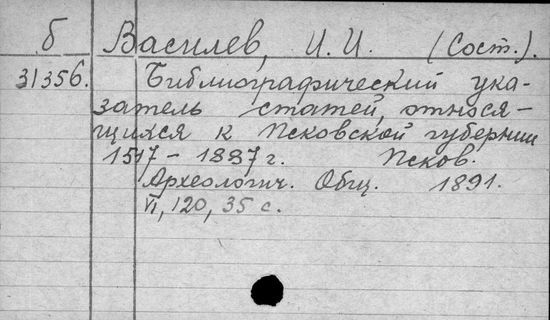 б Василев, И. И. (Сост.).
31356. Библиографический ука-
затель статей, относя-
щихся к Псковской губернии
1517 - 1887 г. Псков.
Археологич. Общ. 1891.
VI, 120, 35 с.